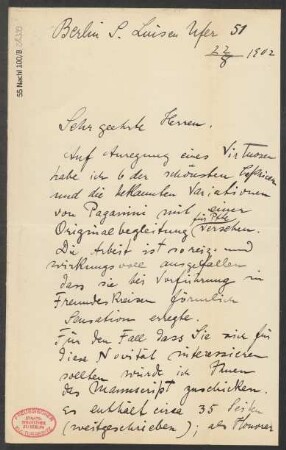 Berlin S. Luisen Ufer 51
22/8 1902
Sehr geehrte Herren.
Auf Anregung eines Virtuosen
habe ich 6 der schönsten Capricen
und die bekannten Variationen
von Paganini mit einer
Originalbegleitung für Pfte versehen.
Die Arbeit ist so reiz- und
wirkungsvoll ausgefallen
dass sie bei Vorführung in
Freundeskreisen förmlich
Sensation erregte.
Für den Fall dass Sie sich für
diese Novität interessieren
sollten würde ich Ihnen
das Manuscript zuschicken.
Es enthält circa 35 Seiten
(weitgeschrieben); als Honorar
55 Nachl 100/B